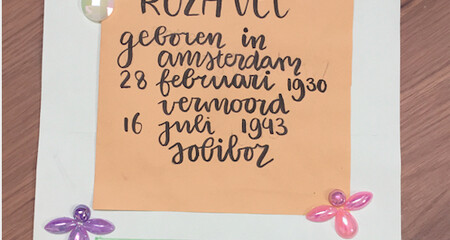 geboren in
amsterdam
28 februari 1930
vermoord
16 juli 1943
sobibor